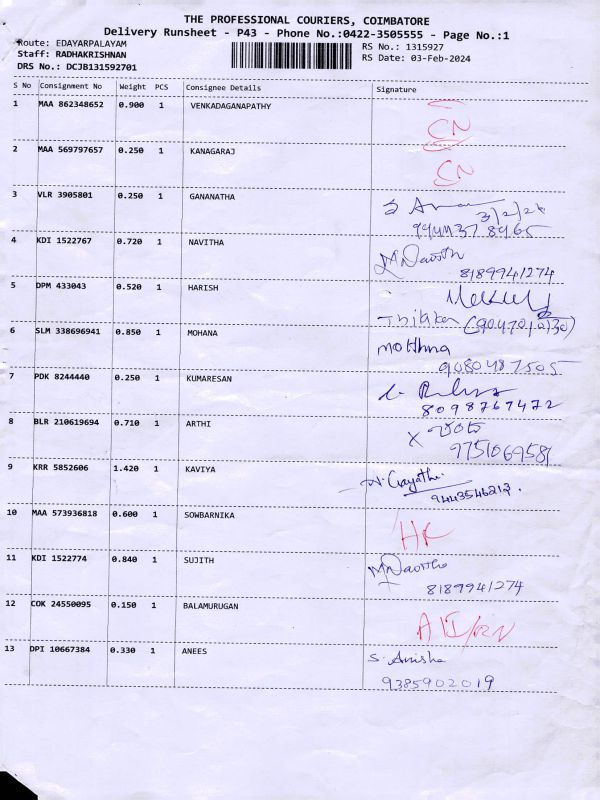 THE PROFESSIONAL COURIERS, COIMBATORE
Delivery Runsheet - P43 - Phone No.:0422-3505555 - Page No.:1
Route: EDAYARPALAYAM
RS No.: 1315927
Staff: RADHAKRISHNAN
RS Date: 03-Feb-2024
DRS No.: DCJB131592701
S No Consignment No Weight PCS Consignee Details Signature
1 MAA 862348652 0.900 1 VENKADAGANAPATHY
CN
2 MAA 569797657 0.250 1 KANAGARAJ
CN
3 VLR 3905801 0.250 1 GANANATHA
3/2/24
4 KDI 1522767 0.720 1 NAVITHA
8189941274
5 DPM 433043 0.520 1 HARISH
6 SLM 338696941 0.850 1 MOHANA
9080487505
7 PDK 8244440 0.250 1 KUMARESAN
8098767472
8 BLR 210619694 0.710 1 ARTHI
9751069581
9 KRR 5852606 1.420 1 KAVIYA
9443546213.
10 MAA 573936818 0.600 1 SOWBARNIKA
11 KDI 1522774 0.840 1 SUJITH
8189941274
12 COK 24550095 0.150 1 BALAMURUGAN
13 DPI 10667384 0.330 1 ANEES
S. Anisha
9385902019